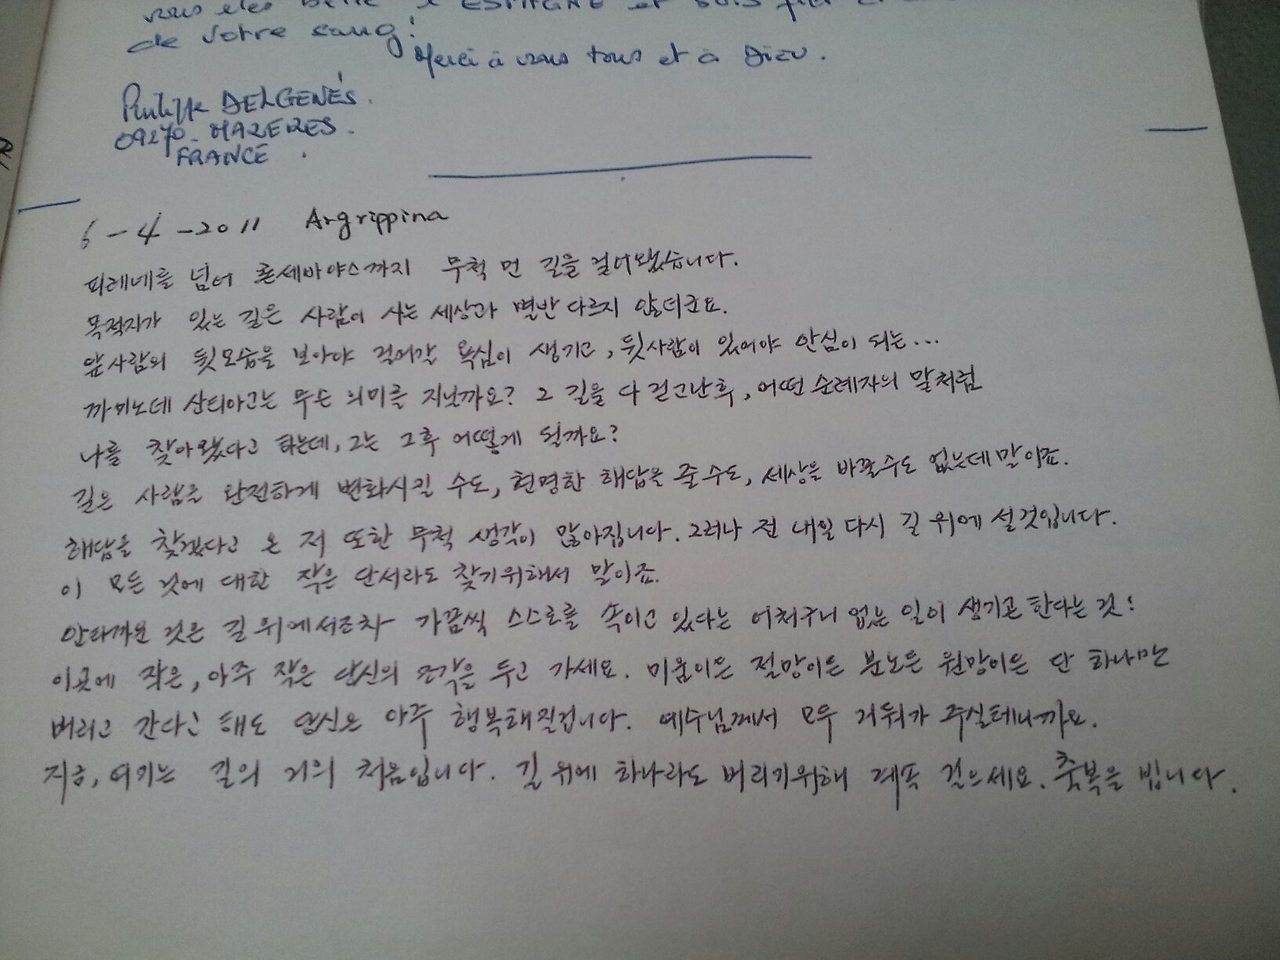 vous êtes belle l'ESPAGNE et suis fier
de votre sang!
Merci à vous tous et à Dieu.
Philippe DELGENÉS.
09270 - MAZERES.
FRANCE.
6-4-2011 Argrippina
피레네를 넘어 론세바야스까지 무척 먼 길을 걸어왔습니다.
목적지가 있는 길은 사람이 사는 세상과 별반 다르지 않더군요.
앞사람의 뒷모습을 보아야 걸어갈 욕심이 생기고, 뒷사람이 있어야 안심이 되는...
까미노데 산티아고는 무슨 의미를 지닐까요? 그 길을 다 걷고난 후, 어떤 순례자의 말처럼
나를 찾아왔다고 하는데, 그는 그후 어떻게 될까요?
길은 사람을 완전하게 변화시킬 수도, 현명한 해답을 줄 수도, 세상을 바꿀수도 없는데 말이죠.
해답을 찾겠다고 온 저 또한 무척 생각이 많아집니다. 그러나 전 내일 다시 길 위에 설 것입니다.
이 모든 것에 대한 작은 단서라도 찾기위해서 말이죠.
안타까운 것은 길 위에서조차 가끔씩 스스로를 속이고 있다는 어처구니 없는 일이 생기곤 한다는 것!
이곳에 작은, 아주 작은 당신의 조각을 두고 가세요. 미움이든 절망이든 분노든 원망이든 단 하나만
버리고 간다고 해도 당신은 아주 행복해질겁니다. 예수님께서 모두 거둬가 주실테니까요.
지금, 여기는 길의 거의 처음입니다. 길 위에 하나라도 버리기위해 계속 걸으세요. 축복을 빕니다.